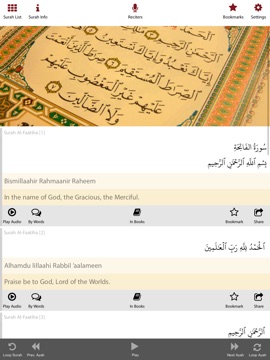 Surah List
Surah Info
Reciters
Bookmarks
Settings
Surah Al-Faatiha [1]
سُورَةُ الفَاتِحَةِ
بِسْمِ اللَّهِ الرَّحْمَٰنِ الرَّحِيمِ
Bismillaahir Rahmaanir Raheem
In the name of God, the Gracious, the Merciful.
Play Audio
By Words
In Books
Bookmark
Share
Surah Al-Faatiha [2]
الْحَمْدُ لِلَّهِ رَبِّ الْعَالَمِينَ
Alhamdu lillaahi Rabbil 'aalameen
Praise be to God, Lord of the Worlds.
Play Audio
By Words
In Books
Bookmark
Share
Surah Al-Faatiha [3]
الرَّحْمَٰنِ الرَّحِيمِ
Loop Surah
Prev. Ayah
Play
Next Ayah
Loop Ayah